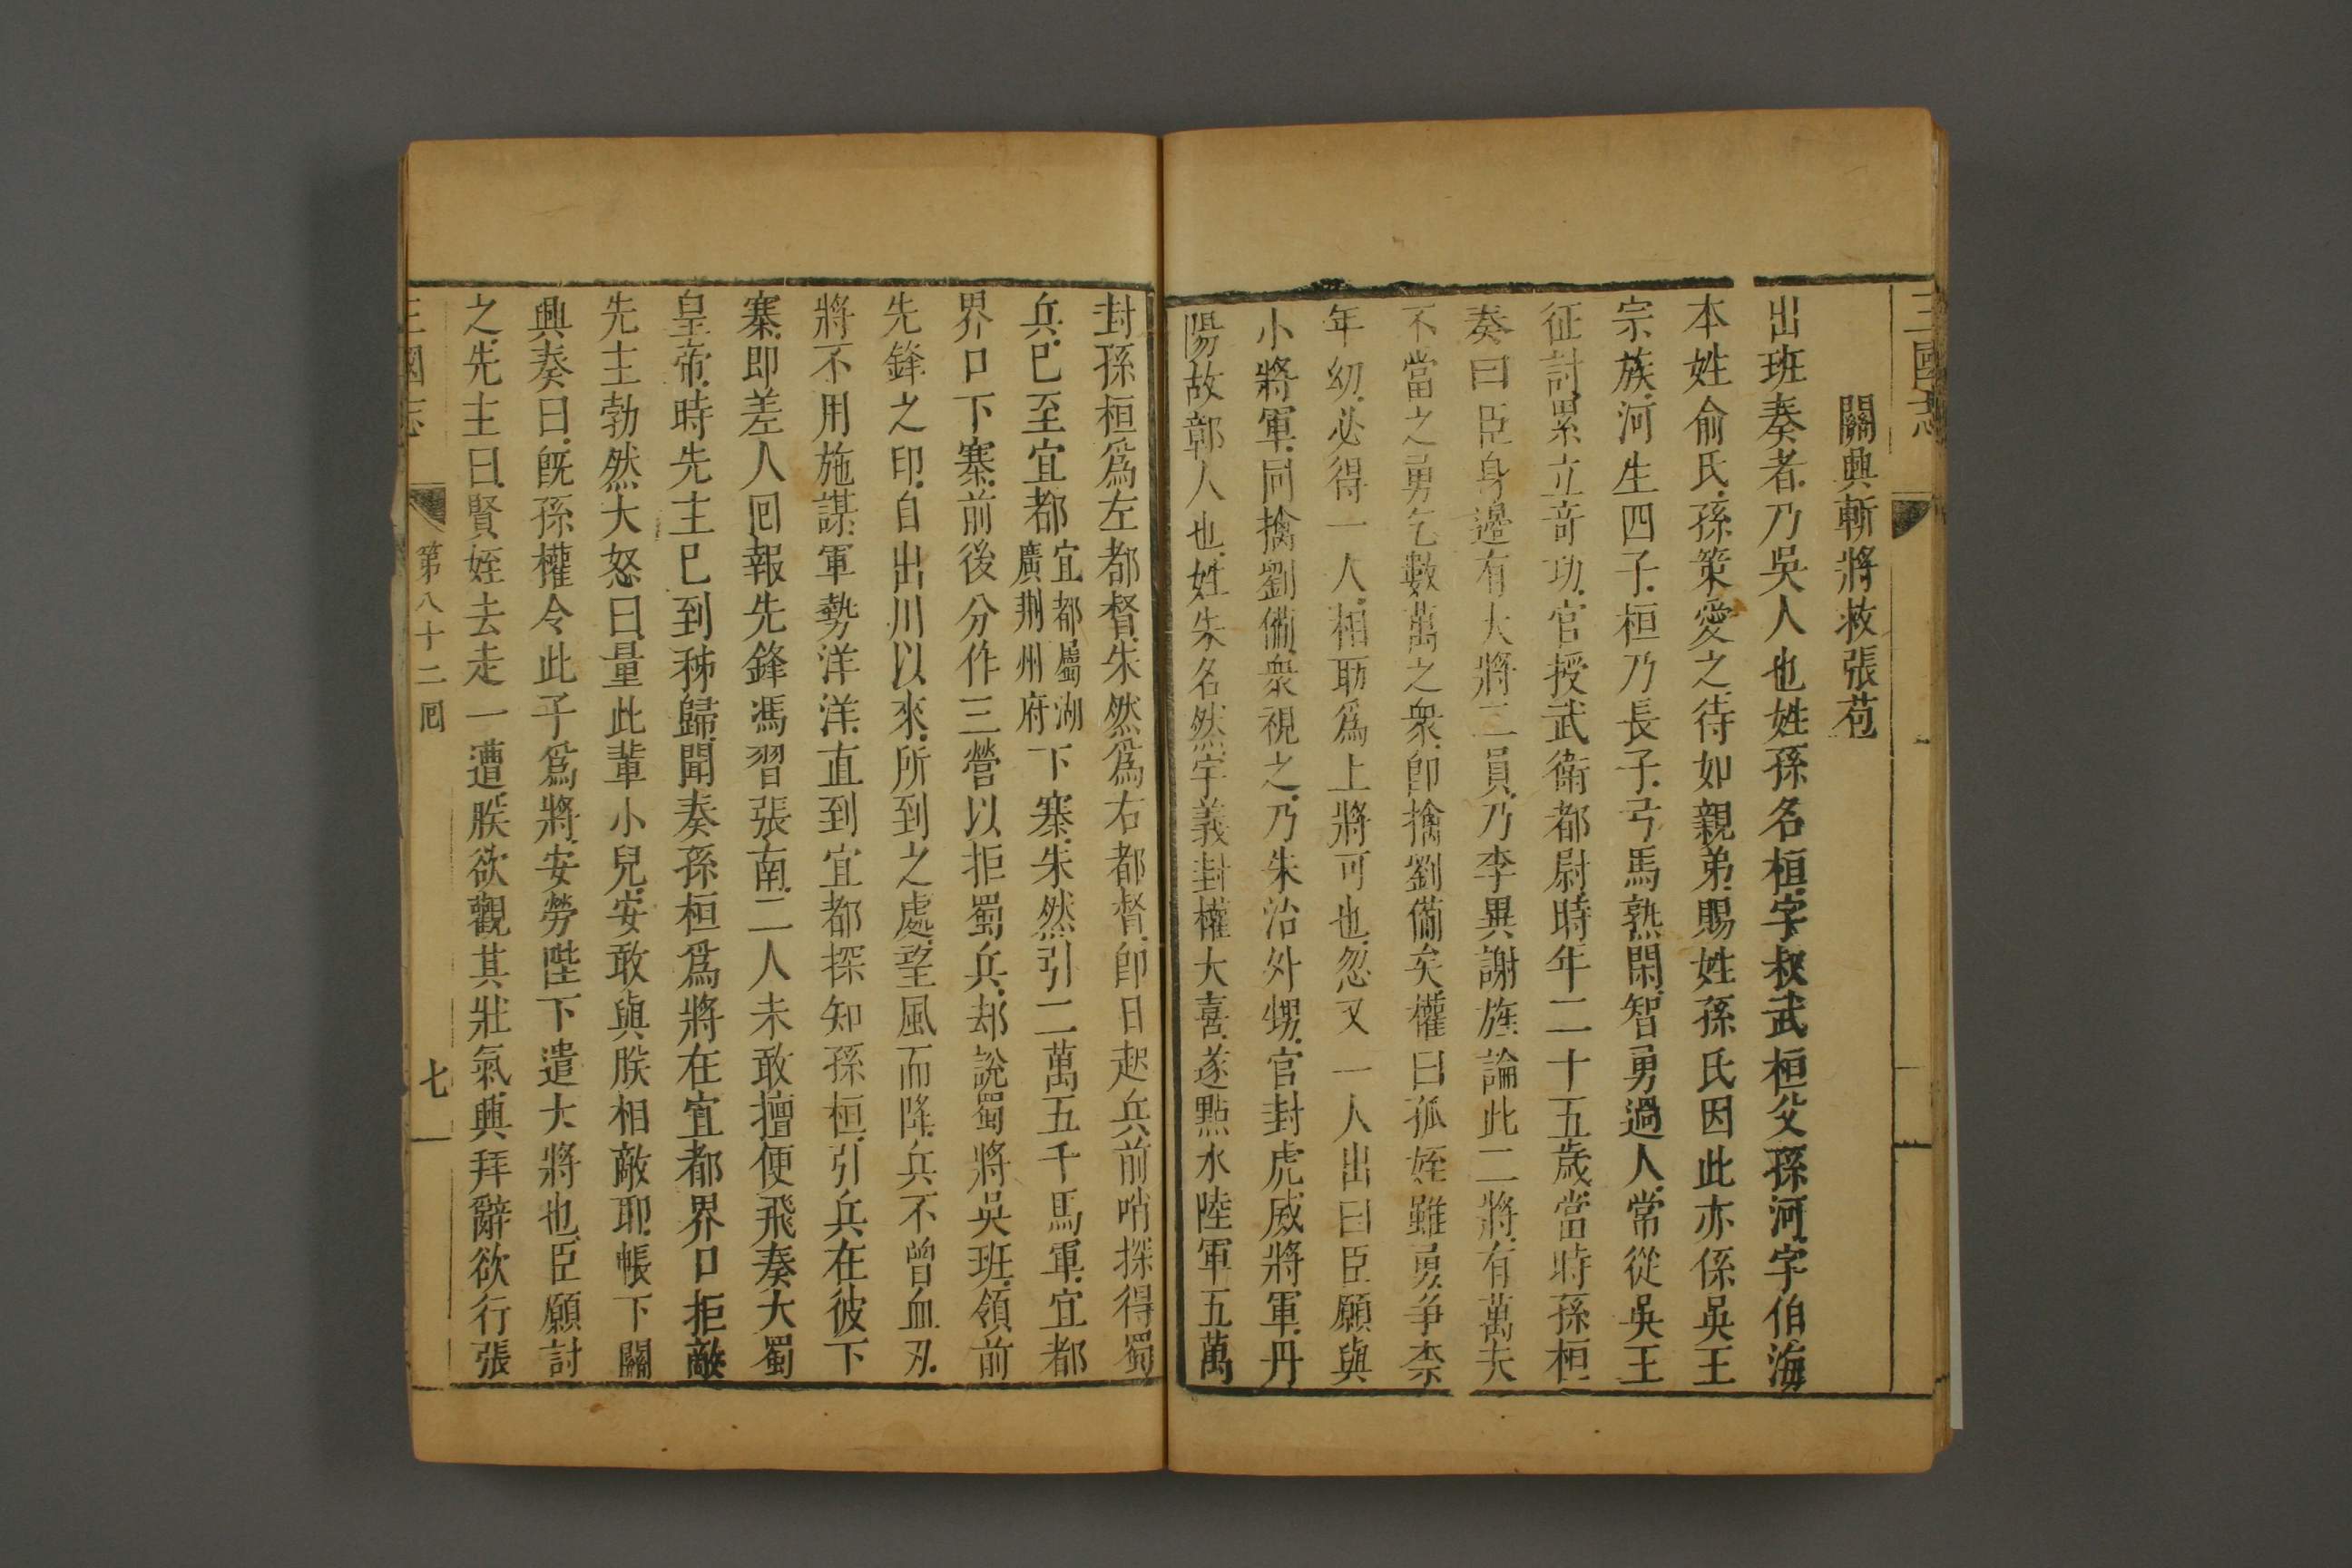 三國志
關興斬將救張苞
出班奏者乃吳人也姓孫名桓字叔武桓父孫河字伯海
本姓俞氏孫策愛之待如親弟賜姓孫氏因此亦係吳王
宗族河生四子桓乃長子弓馬熟閑智勇過人常從吳王
征討累立竒功官授武衛都尉時年二十五歲當時孫桓
奏曰臣身邊有大將二員乃李異謝旌論此二將有萬夫
不當之勇乞數萬之衆卽擒劉備矣權曰孤姪雖勇爭柰
年幼必得一人相助爲上將可也忽又一人出曰臣願與
小將軍同擒劉備衆視之乃朱治外甥官封虎威將軍丹
陽故鄣人也姓朱名然字義封權大喜遂點水陸軍五萬
封孫桓爲左都督朱然爲右都督卽日起兵前哨探得蜀
兵已至宜都宜都屬湖廣荆州府下寨朱然引二萬五千馬軍宜都
界口下寨前後分作三營以拒蜀兵却說蜀將吳班領前
先鋒之印自出川以來所到之處望風而降兵不曾血刃
將不用施謀軍勢洋洋直到宜都探知孫桓引兵在彼下
寨卽差人回報先鋒馮習張南二人未敢擅便飛奏大蜀
皇帝時先主已到秭歸聞奏孫桓爲將在宜都界口拒敵
先主勃然大怒曰量此輩小兒安敢與朕相敵耶帳下關
興奏曰旣孫權令此子爲將安勞陛下遣大將也臣願討
之先主曰賢姪去走一遭朕欲觀其壯氣興拜辭欲行張
三國志 第八十二囘 七